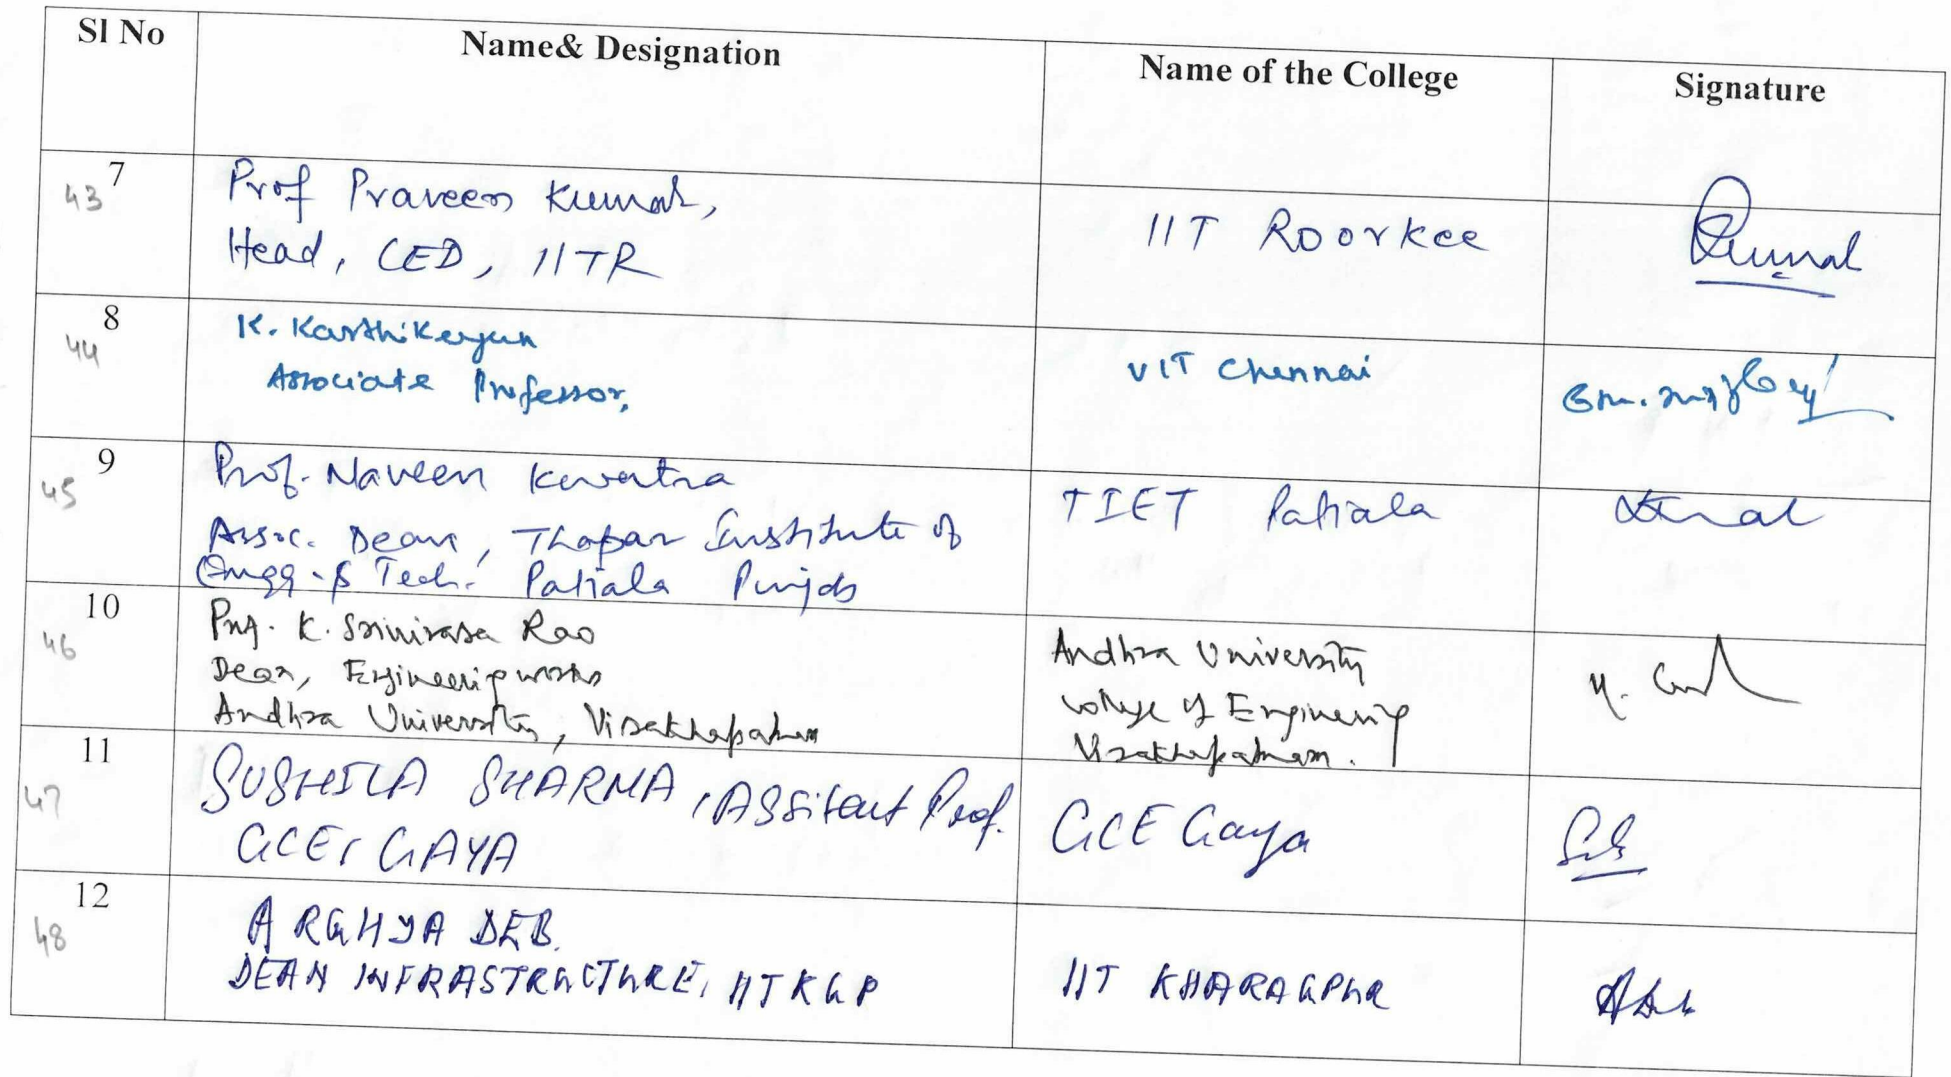 Sl No Name& Designation Name of the College Signature
7
43
Prof Praveen Kumar,
Head, CED, IITR
IIT Roorkee
8
44
K. Karthikeyan
Associate Professor,
VIT Chennai
9
45
Prof. Naveen Kwatra
Assoc. Dean, Thapar Institute of
Engg. & Tech. Patiala Punjab
TIET Patiala
10
46
Prof. K. Srinivasa Rao
Dean, Engineering works
Andhra University, Visakhapatnam
Andhra University
College of Engineering
Visakhapatnam.
11
47
SUSHILA SHARMA, Assitant Prof.
GCE, GAYA
GCE Gaya
12
48
ARGHYA DEB.
DEAN INFRASTRUCTURE, IITKGP
IIT KHARAGPUR